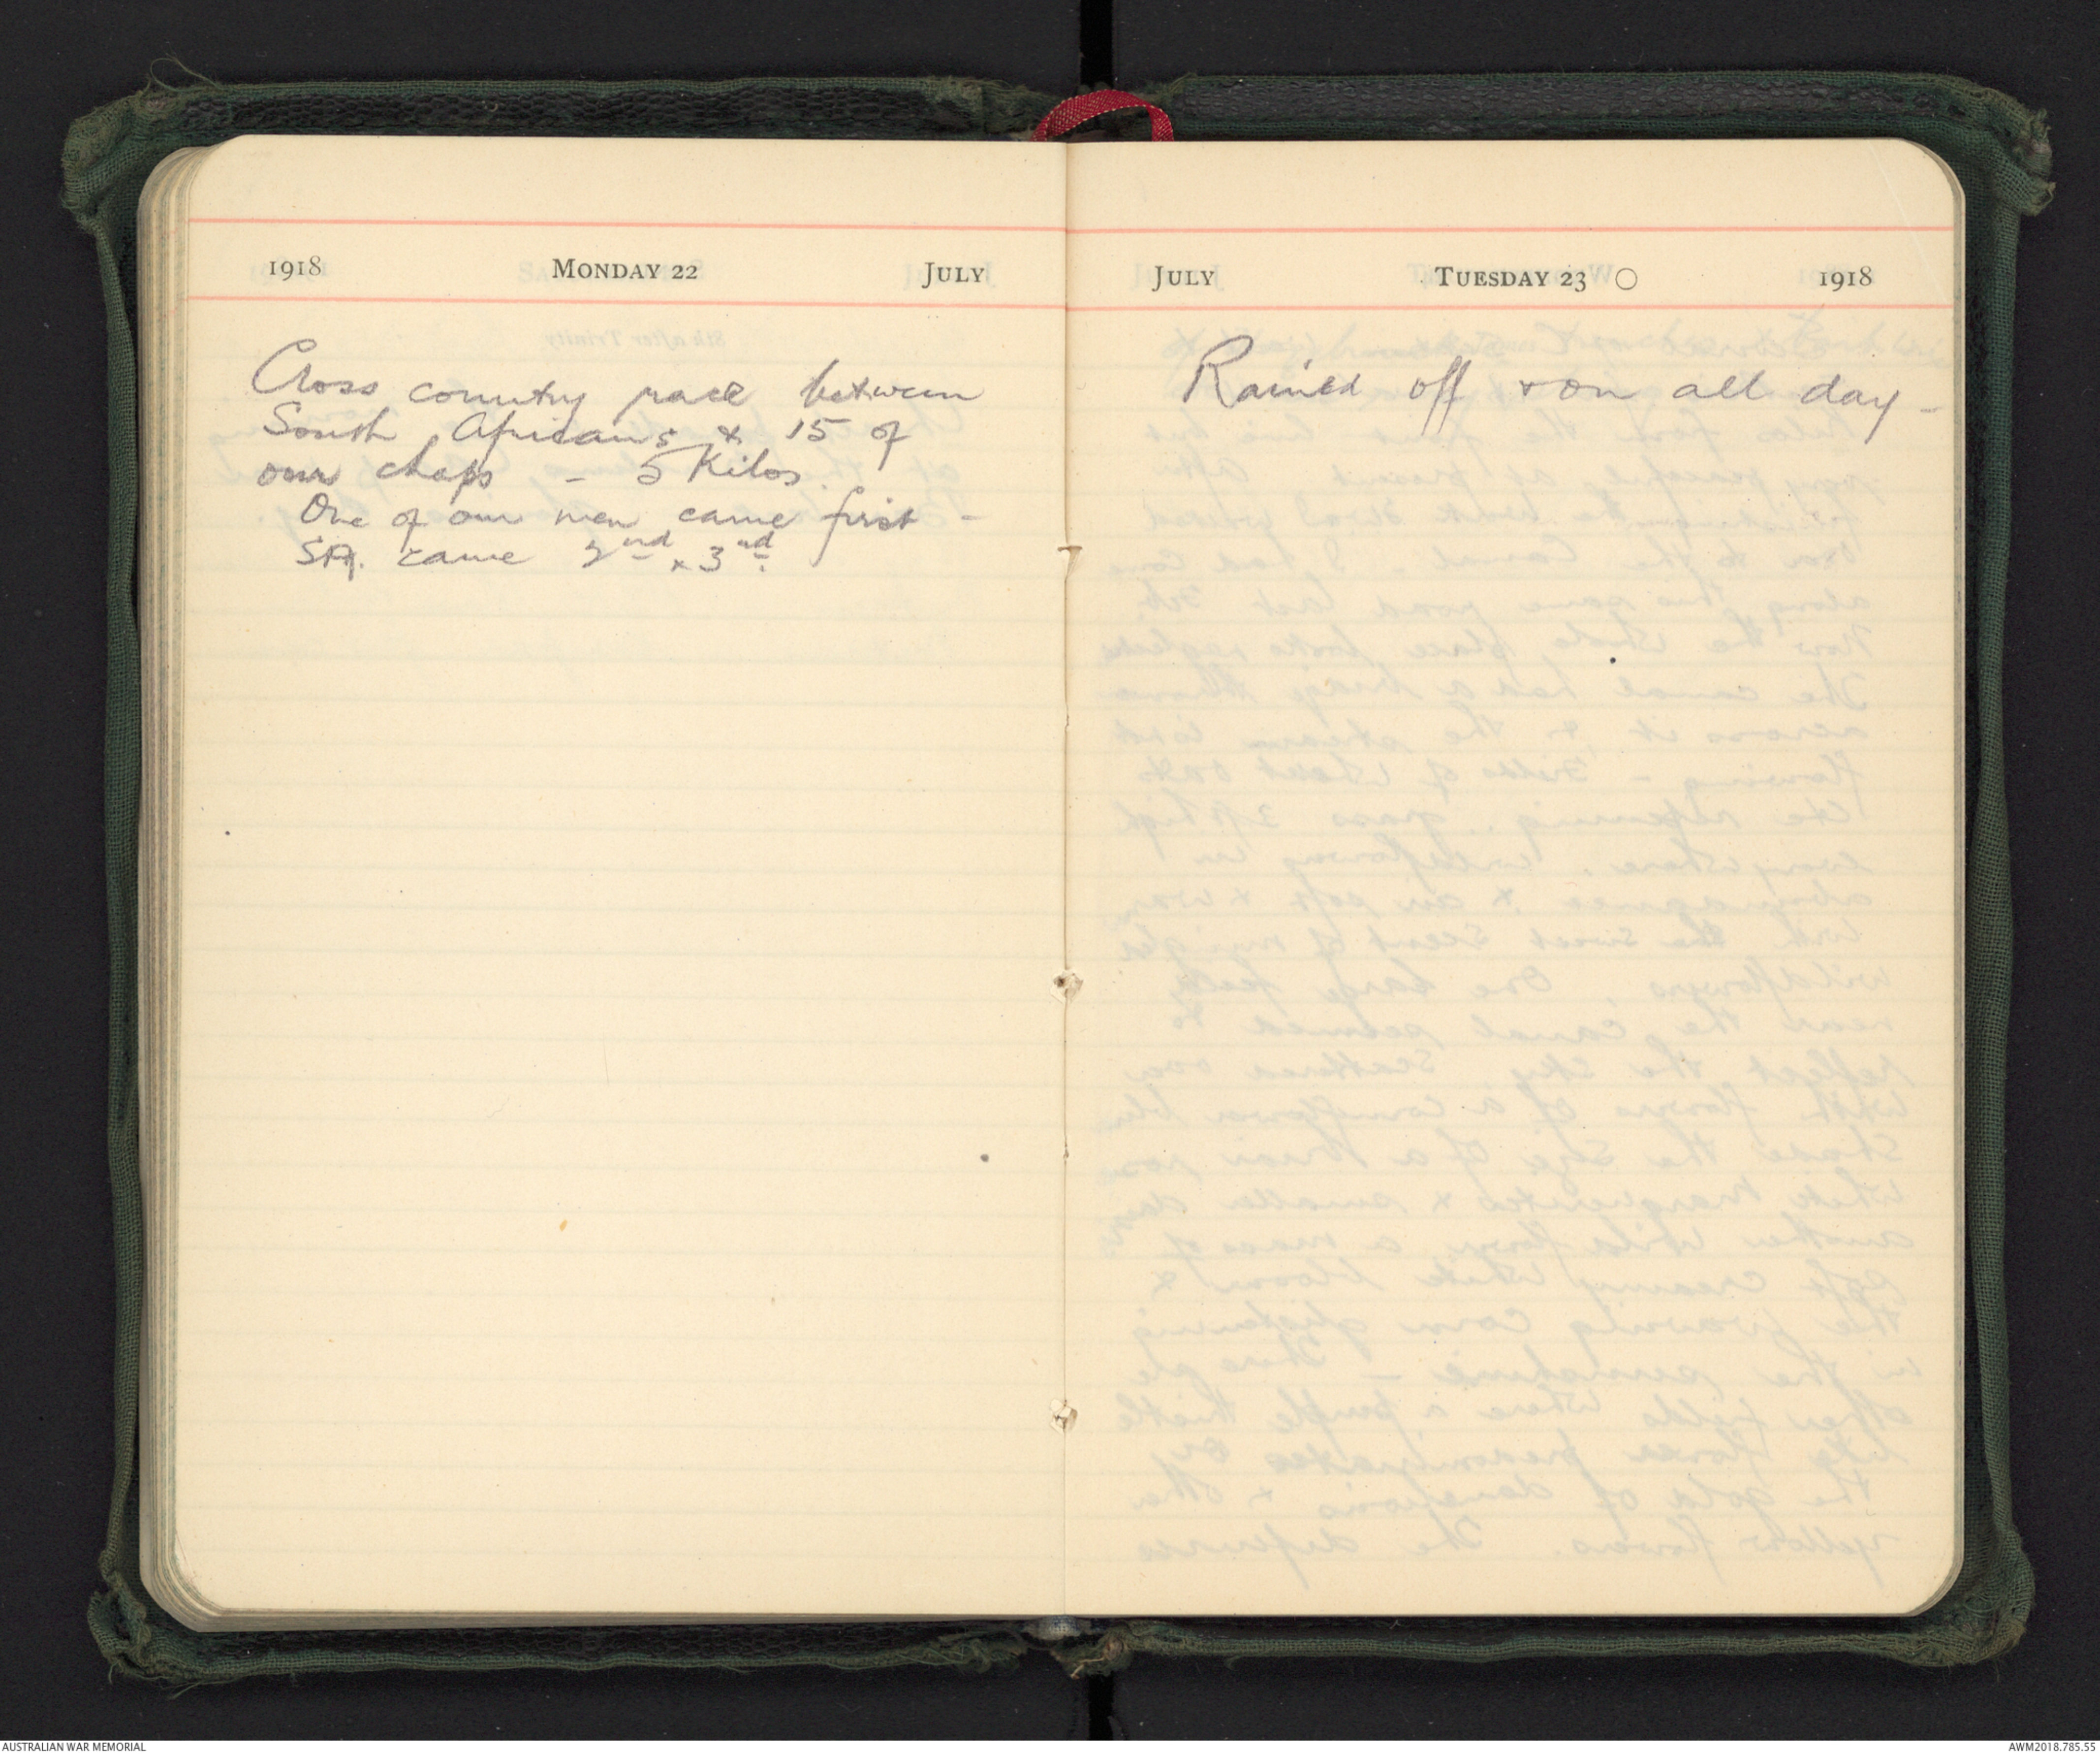 1918 MONDAY 22 JULY
Cross country race between
South Africans & 15 of
our chaps - 5 Kilos
One of our men came first -
SA. came 2nd & 3rd.
JULY TUESDAY 23 1918
Rained off & on all day -
AUSTRALIAN WAR MEMORIAL
AWM2018.785.55